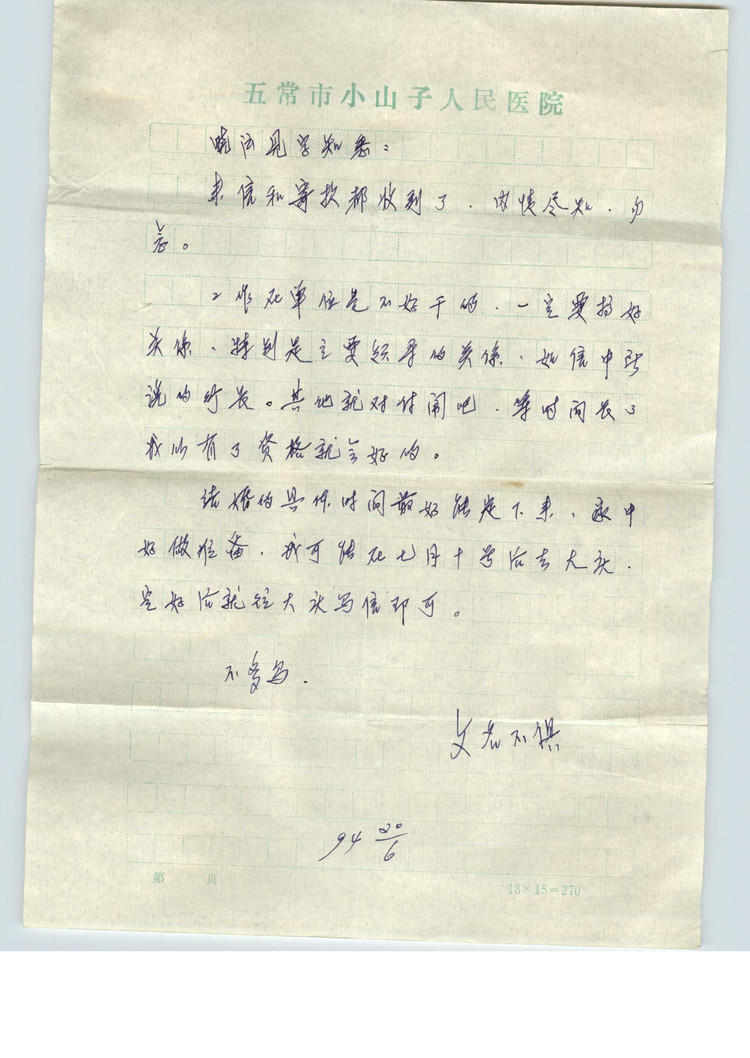 五常市小山子人民医院
晓河见字知悉：
来信和寄款都收到了．内情尽知．勿
念。
工作在单位是不好干的．一定要搞好
关系、特别是主要领导的关系．如信中所
说的所长。其他就对付闹吧．等时间长了
我以有了资格就会好的。
结婚的具体时间最好能定下来、家中
好做准备．我可能在七月十号后去大庆．
定好后就往大庆写信即可。
不多写．
父
94 20/6
第 页
18×15=270